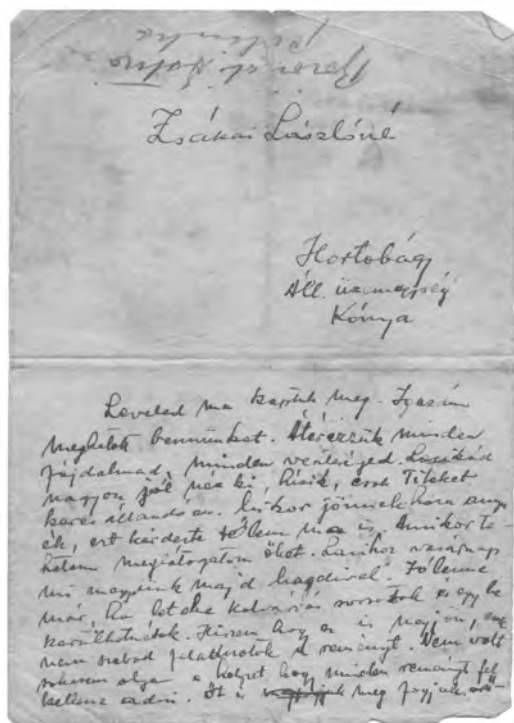 Zsákai Lászlóné
Hortobágy
Áll. üzemegység
Kónya
Leveled ma kaptuk meg. Igazán
meghatott bennünket. Átérezzük minden
fájdalmad, minden veszteséged. Lacikád
nagyon jól néz ki, hízik, csak Titeket
keres állandóan. Mikor jönnek haza
ék, ezt kérdezte tőlem ma is. Amikor te-
hetem meglátogatom őket. vasárnap
mi megyünk majd Magdival. Jó lenne
már, ha letelne kálváriás sorsotok és egybe
kerülhetnétek. Hiszem, hogy ez is megjön,
nem szabad feladnotok a reményt. Nem volt
sohasem olyan a helyzet hogy minden reményt fel
kellene adni. Itt is meg fogjuk